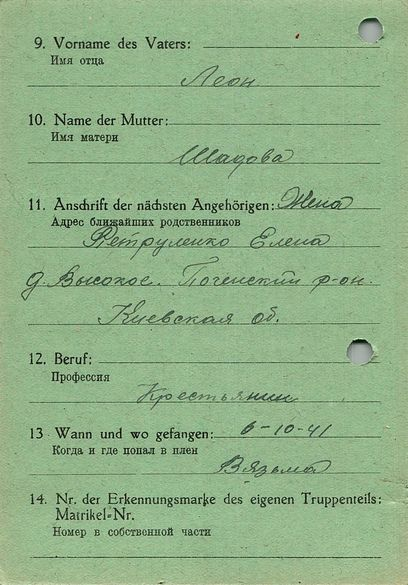 9. Vorname des Vaters:
Имя отца
Леон
10. Name der Mutter:
Имя матери
Шадова
11. Anschrift der nächsten Angehörigen: Жена
Адрес ближайших родственников
Петруленко Елена
д. Высокое. Поченский р-он.
Киевская об.
12. Beruf:
Профессия
Крестьянин
13 Wann und wo gefangen: 6-10-41
Когда и где попал в плен
Вязьма
14. Nr. der Erkennungsmarke des eigenen Truppenteils:
Matrikel-Nr.
Номер в собственной части